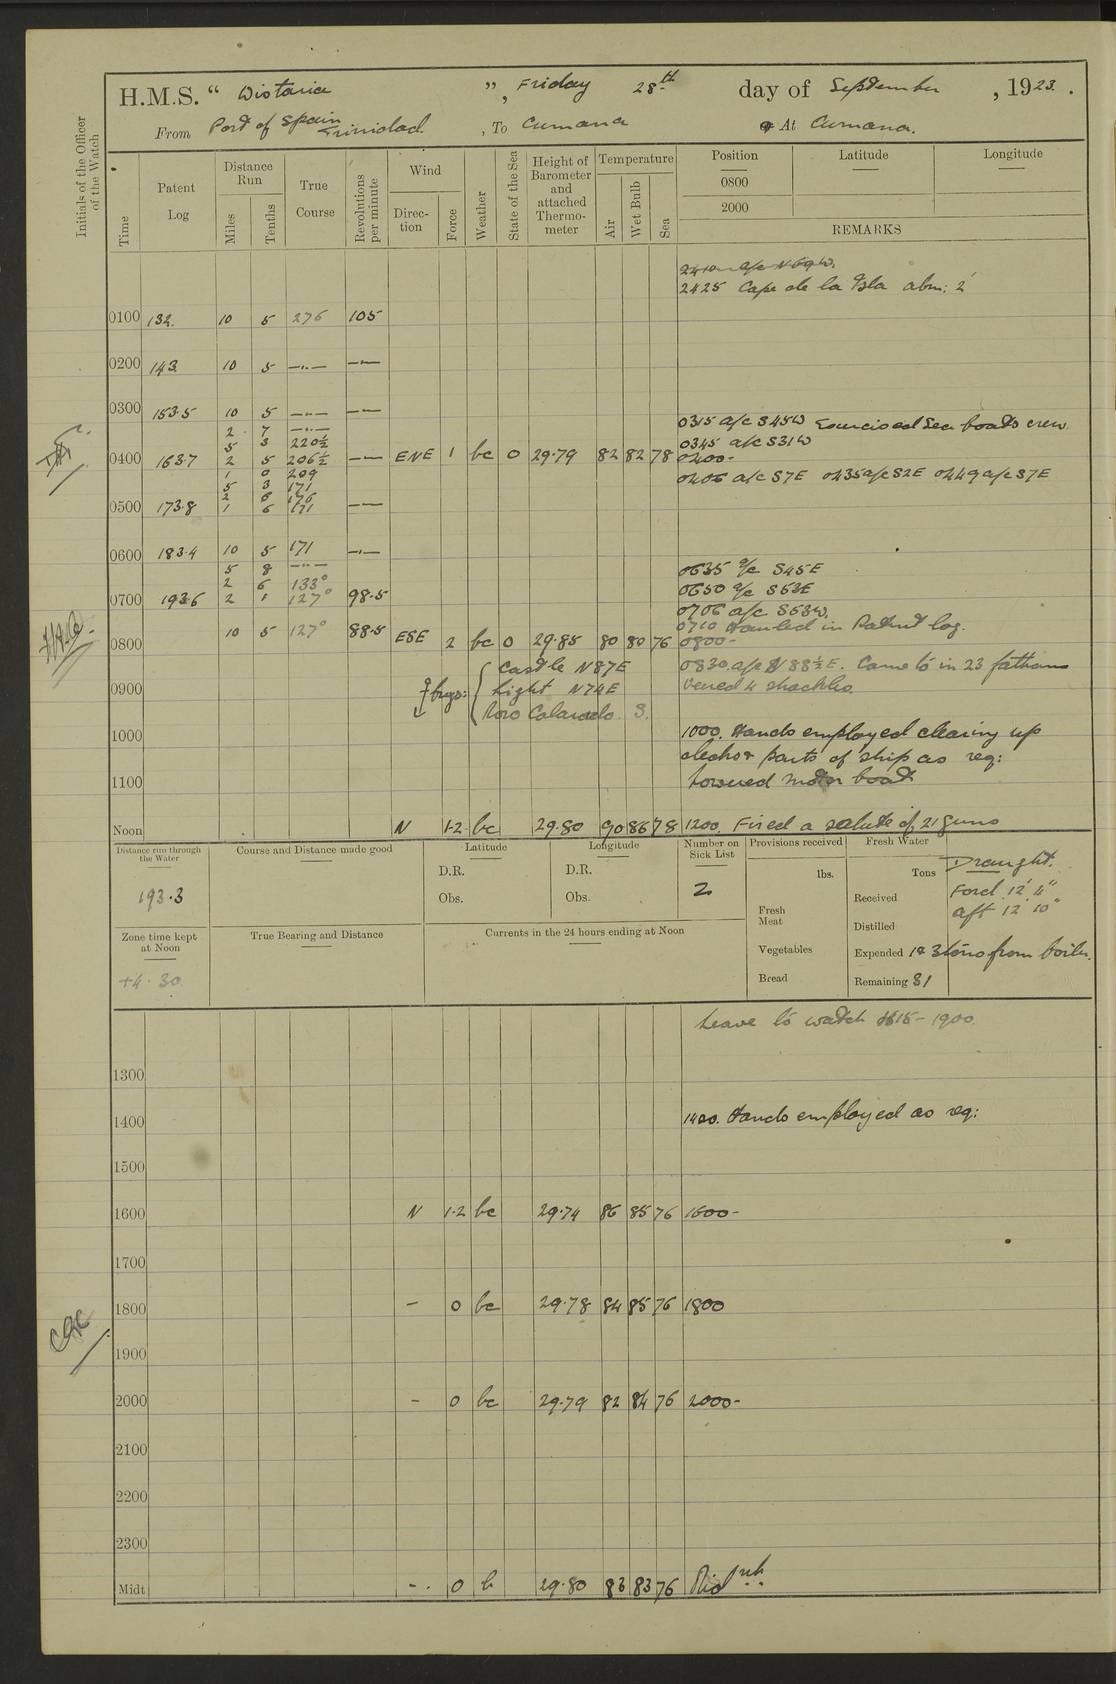 H.M.S. “ Wistaria ”, Friday 28th day of September, 1923.
From Port of Spain Trinidad. , To Cumana At Cumana.
Initials of the Officer of the Watch
Time
Patent Log
Distance Run
Miles
Tenths
True Course
Revolutions per minute
Wind
Direction
Force
Weather
State of the Sea
Height of Barometer and attached Thermometer
Temperature
Air
Wet Bulb
Sea
Position
0800
2000
Latitude
Longitude
REMARKS
2410 a/c N69W.
2425 Cape de la Isla abm: 2'
0100 132. 10 5 276 105
0200 143. 10 5 —"— —"—
0300 153.5 10 5 —"— —"—
0315 a/c S45W Exercised Sea boats crew
2 7 —"—
0345 a/c S31W
5 3 220½
0400 163.7 2 5 206½ —"— ENE 1 bc 0 29.79 82 82 78 0400-
1 0 209
0406 a/c S7E 0435 a/c S2E 0449 a/c S7E
5 3 171
2 6 176
0500 173.8 1 6 171 —"—
0600 183.4 10 5 171 —"—
5 8 —"—
0635 a/c S45E
2 6 133°
0650 a/c S53E
0700 193.6 2 1 127° 98.5
0706 a/c S53W.
0710 Hauled in Patent log.
0800 10 5 127° 88.5 ESE 2 bc 0 29.85 80 80 76 0800-
Castle N87E
0830 a/c N88½E. Came to in 23 fathoms
0900 brgs: Light N74E
veered 4 shackles
Roro Colarado S.
1000
1000. Hands employed clearing up
decks & parts of ship as req:
1100
Lowered motor boat
Noon N 1.2 bc 29.80 90 86 78 1200. Fired a salute of 21 guns
Distance run through the Water
193.3
Zone time kept at Noon
+4.30
Course and Distance made good
True Bearing and Distance
Latitude
D.R.
Obs.
Longitude
D.R.
Obs.
Currents in the 24 hours ending at Noon
Number on Sick List
2
Provisions received
lbs.
Fresh Meat
Vegetables
Bread
Fresh Water
Tons
Received
Distilled
Expended 1 & 3 tons from boiler.
Remaining 81
Draught.
Ford 12' 4"
aft 12' 10"
Leave to watch 1615-1900
1300
1400 1400. Hands employed as req:
1500
1600 N 1.2 bc 29.74 86 85 76 1600-
1700
1800 - 0 bc 29.78 84 85 76 1800
1900
2000 - 0 bc 29.79 82 84 76 2000-
2100
2200
2300
Midt - 0 b 29.80 83 83 76 Midnt